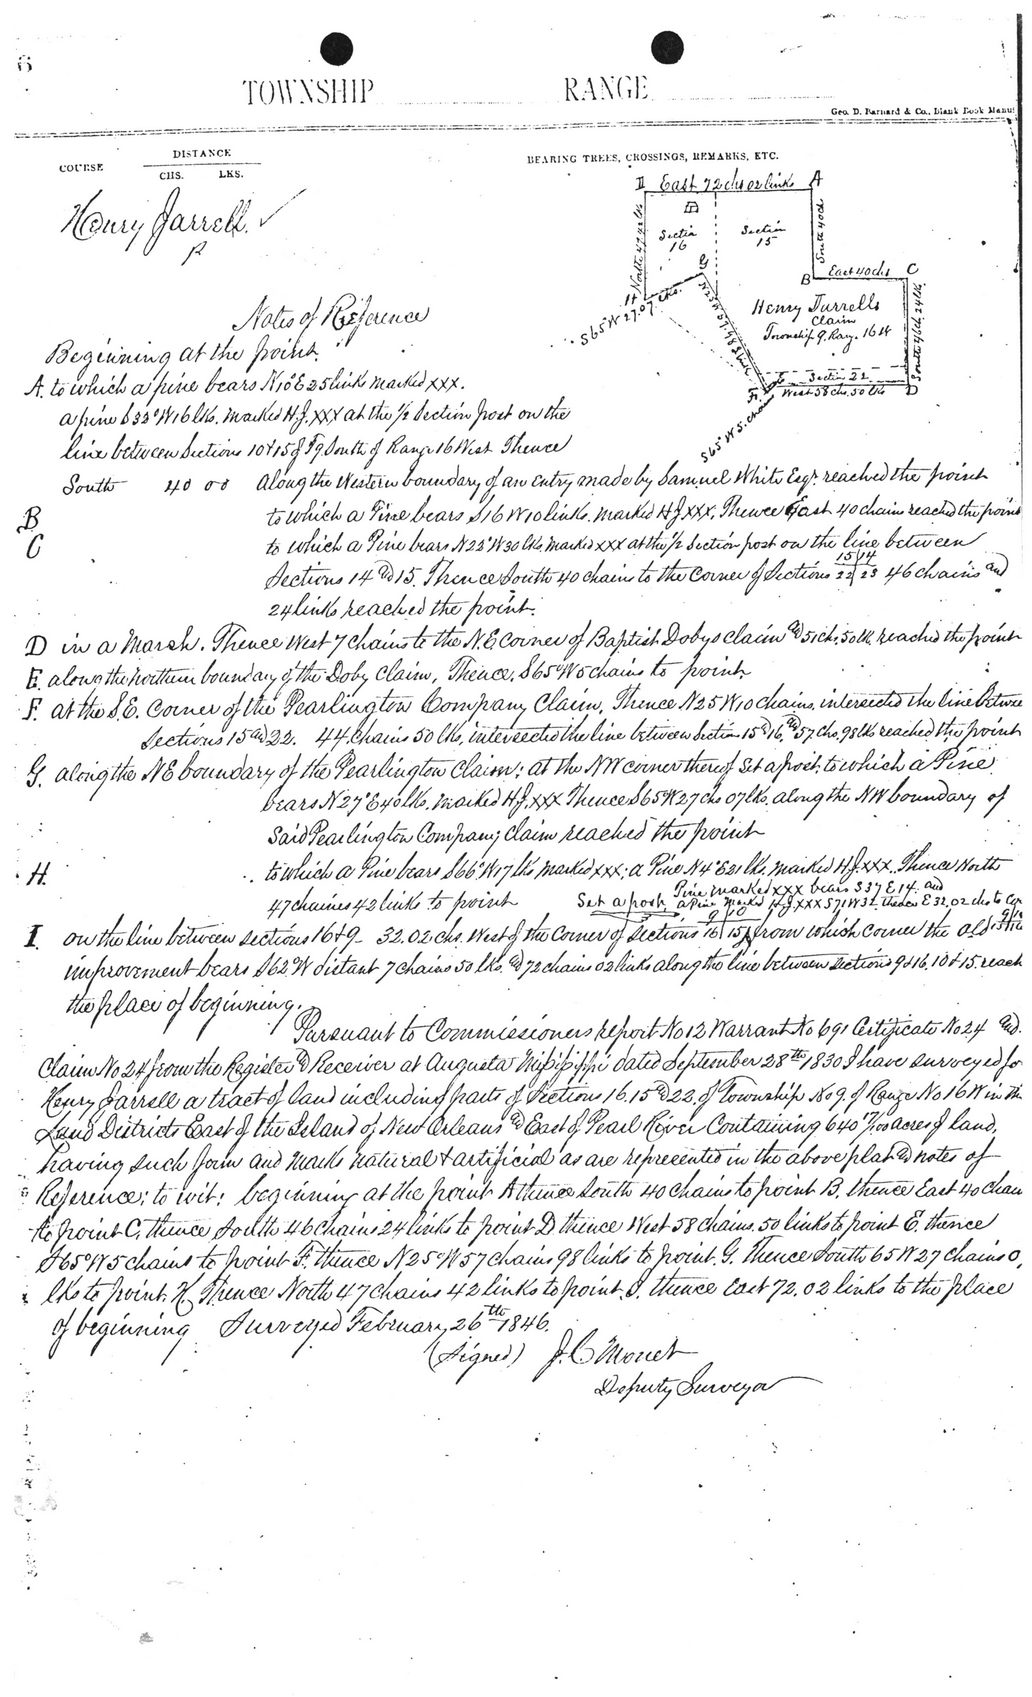 6
TOWNSHIP RANGE
Geo. D. Barnard & Co., Blank Book Manu
COURSE
DISTANCE
CHS. LKS.
BEARING TREES, CROSSINGS, REMARKS, ETC.
Henry Jarrell. ✓
I East 72 chs 02 links A
Section 16
Section 15
North 47.42 lks
South 40 chs
G
B East 40 chs C
H
S65°W 27.07 chs.
Henry Jurrells
Claim
Township 9. Rang. 16 W
South 46 ch. 24 lk.
E Section 22
F West 58 chs. 50 lks D
S65°W 5. chains
Notes of Reference
Beginning at the point.
A. to which a pine bears N10°E 25 links marked XXX.
a pine S32°W 16 lks. marked H.J. XXX at the ½ Section post on the
line between Sections 10 & 15 of T9 South of Range 16 West Thence
South 40 00 Along the Western boundary of an entry made by Samuel White Esqr. reached the point
B to which a Pine bears S16 W 10 links. marked H.J. XXX, Thence East 40 chains reached the point
C to which a Pine bears N22°W 30 lks marked XXX at the ½ Section post on the line between
Sections 14 & 15. Thence South 40 chains to the Corner of Sections 15|14 22|23 46 chains and
24 links reached the point.
D in a Marsh. Thence West 7 chains to the N.E. corner of Baptist Dobys claim & 51 chs. 50 lk. reached the point
E. along the northern boundary of the Doby claim, Thence. S65°W 5 chains to point
F. at the S.E. Corner of the Pearlington Company Claim, Thence N25 W 10 chains, intersected the line betwee
Sections 15 and 22. 44. chains 50 lks, intersected the line between Section 15 & 16, & 57. chs. 98 lks reached the point
G. along the NE boundary of the Pearlington Claim; at the NW corner thereof Set a post; to which a Pine
bears N27°E 40 lks. marked H.J. XXX Thence S65°W 27 chs 07 lks. along the NW boundary of
Said Pearlington Company; Claim reached the point
H. to which a Pine bears S66°W 17 lks marked XXX; a Pine N4°E 21 lks. marked H.J. XXX. Thence North
47 chaines 42 links to point Set a post, Pine marked XXX bears S37 E 14. and
a Pine marked H.J. XXX S71 W 32. thence E 32.02 chs to Cor
I. on the line between sections 16 & 9 - 32.02 chs. West of the Corner of Sections 9|10 16|15 from which corner the old
improvement bears S62°W distant 7 chains 50 lks. & 72 chains 02 links along the line between sections 9 & 16. 10 & 15. reach
the place of beginning.
Pursuant to Commissioners report No 12 Warrant No 691 Certificate No 24 and.
Claim No 24 from the Register & Receiver at Augusta Mississippi dated September 28th 1830 I have surveyed fo
Henry Jarrell a tract of land including parts of Sections 16. 15 & 22. of Township No 9. of Range No 16 W in th
Land Districts East of the Island of New Orleans & East of Pearl River Containing 640 acres of land,
having such form and marks natural & artificial as are represented in the above plat & notes of
Reference; to wit: beginning at the point A thence South 40 chains to point B. thence East 40 chain
to point C, thence South 46 chains 24 links to point D thence West 58 chains. 50 links to point E. thence
S65°W 5 chains to point F. thence N25°W 57 chains 98 links to point. G. Thence South 65 W 27 chains 0,
lks to point. H. Thence North 47 chains 42 links to point. I. thence East 72.02 links to the place
of beginning Surveyed February 26th 1846.
(Signed) J. C Monet
Deputy Surveyor